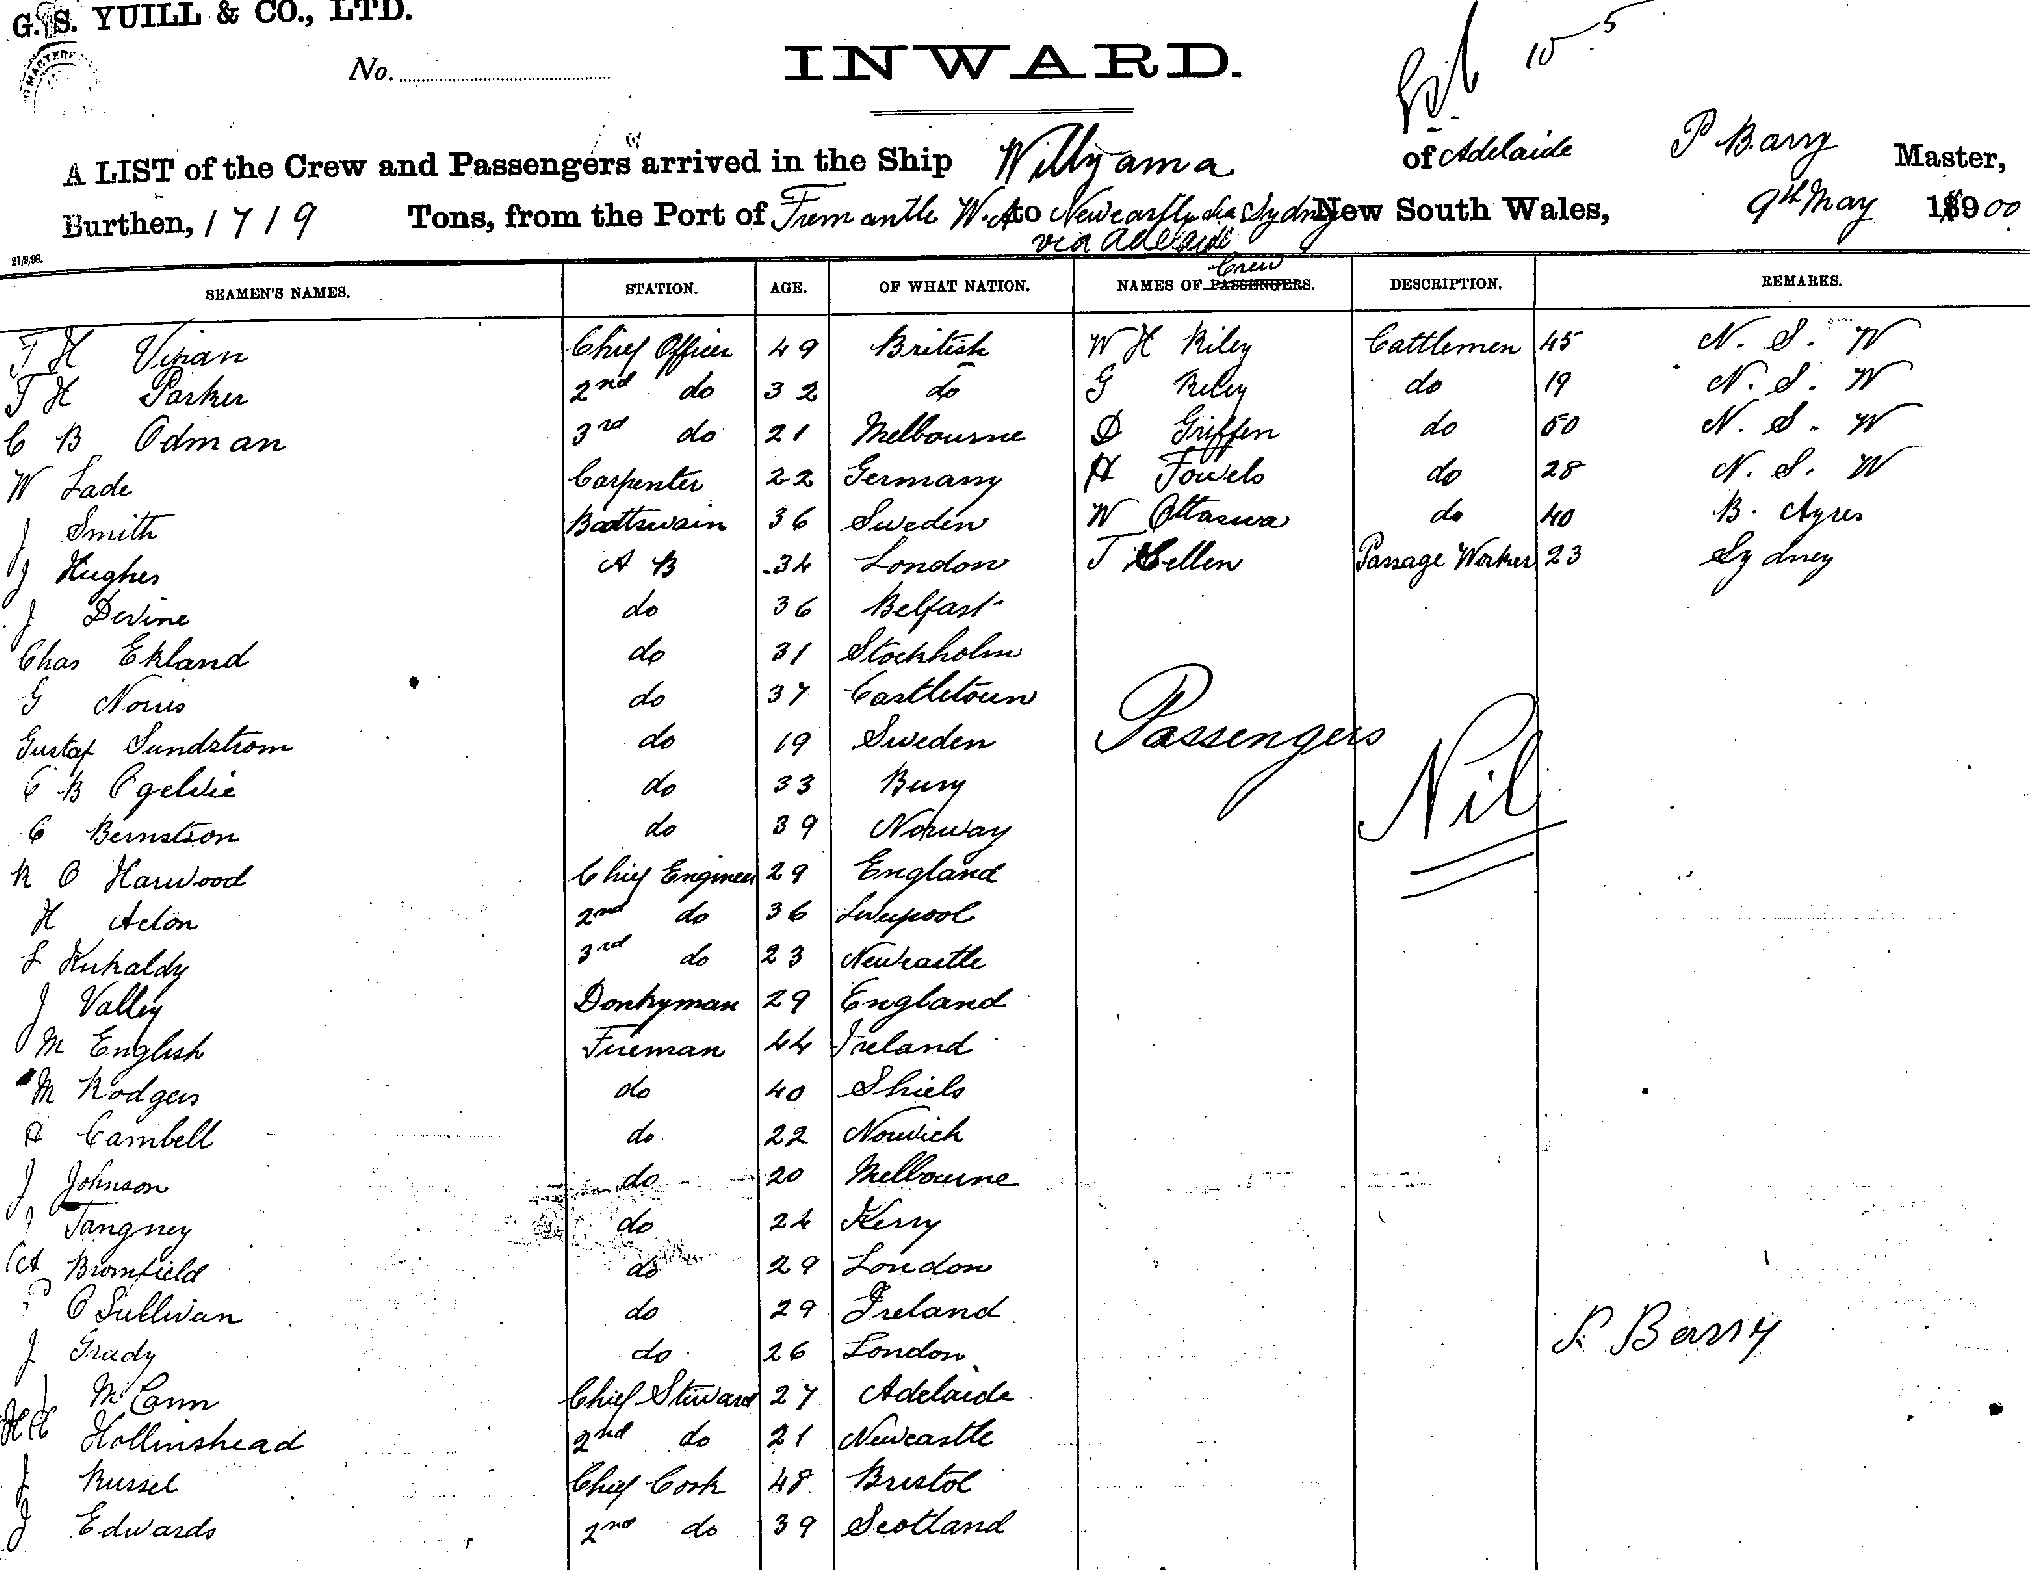 G. S. YUILL & CO., LTD.
No.
INWARD.
10 5
A LIST of the Crew and Passengers arrived in the Ship Willyama of Adelaide P Barry Master,
Burthen, 1719 Tons, from the Port of Fremantle W.A to Newcastle via Sydney New South Wales, 9th May 1900
via Adelaide
21/8/96.
SEAMEN'S NAMES. STATION. AGE. OF WHAT NATION. NAMES OF PASSENGERS. Crew DESCRIPTION. REMARKS.
T H Vivian Chief Officer 49 British W H Riley Cattlemen 45 N. S. W
T H Parker 2nd do 32 do G Riley do 19 N. S. W
C B Odman 3rd do 21 Melbourne D Griffen do 50 N. S. W
W Lade Carpenter 22 Germany H Fowels do 28 N. S. W
J Smith Boatswain 36 Sweden W Ottaswa do 40 B. Ayres
J Hughes A B 34 London T Sellen Passage Worker 23 Sydney
J Devine do 36 Belfast
Chas Ekland do 31 Stockholm
G Norris do 37 Castletown
Gustaf Sundstrom do 19 Sweden
Passengers
C B Ogelvie do 33 Bury
Nil
C Bernstson do 39 Norway
R O Harwood Chief Engineer 29 England
H Acton 2nd do 36 Liverpool
L Kirkaldy 3rd do 23 Newcastle
J Valley Donkyman 29 England
M English Fireman 44 Ireland
M Rodgers do 40 Shiels
A Cambell do 22 Norwich
J Johnson do 20 Melbourne
J Tangney do 24 Kerry
Bromfield do 29 London
P O Sullivan do 29 Ireland
J Grady do 26 London
P. Barry
J McCann Chief Steward 27 Adelaide
H H Hollinshead 2nd do 21 Newcastle
J Russel Chief Cook 48 Bristol
J Edwards 2nd do 39 Scotland